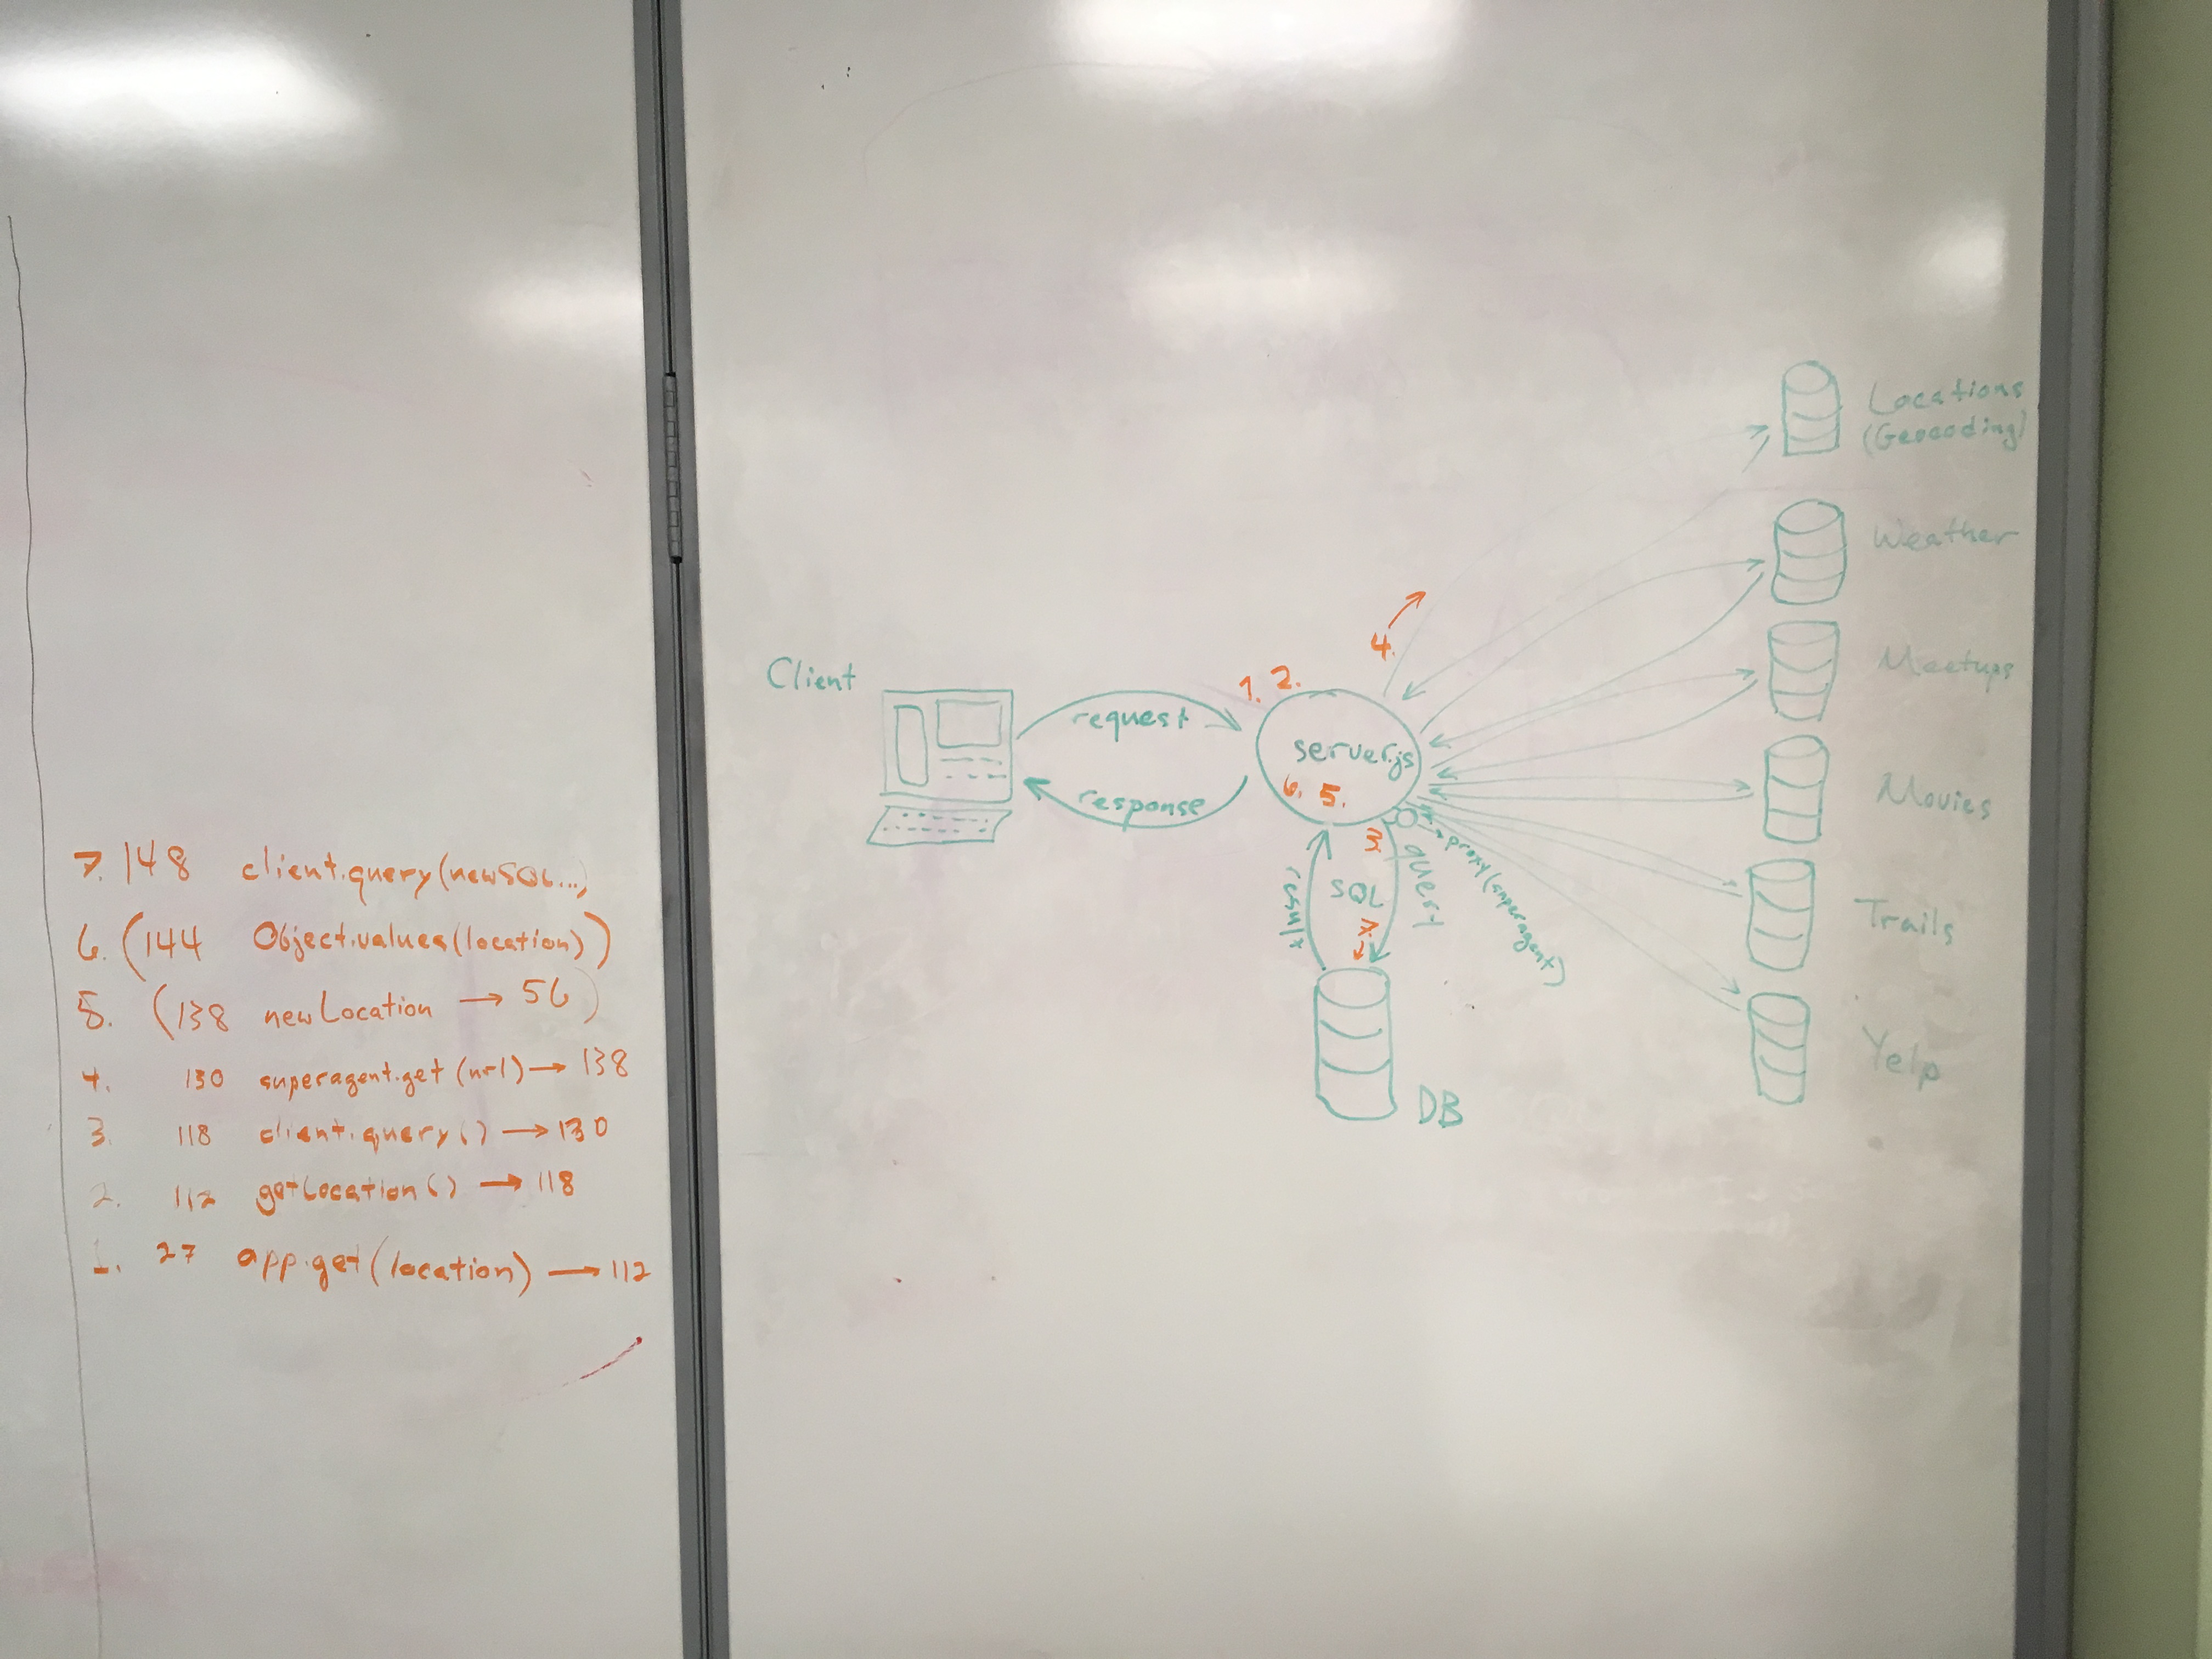 7. 148 client.query(newSQL...)
6. (144 Object.values(location))
5. (138 newLocation → 56)
4. 130 superagent.get(url) → 138
3. 118 client.query() → 130
2. 112 getLocation() → 118
1. 27 app.get(location) → 112
Client
request
response
1. 2.
4.
server.js
6. 5.
3
SQL
7.
query
result
proxy (superagent)
DB
Locations
(Geocoding)
Weather
Meetups
Movies
Trails
Yelp